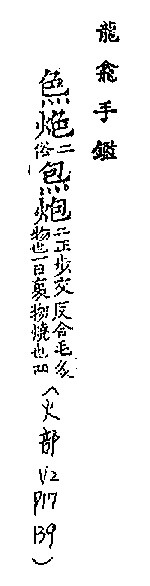 龍龕手鑑
⿱色灬⿰火色二俗炰炮二正步交反合毛炙物也一曰裹物燒也四(火部V2P17139)